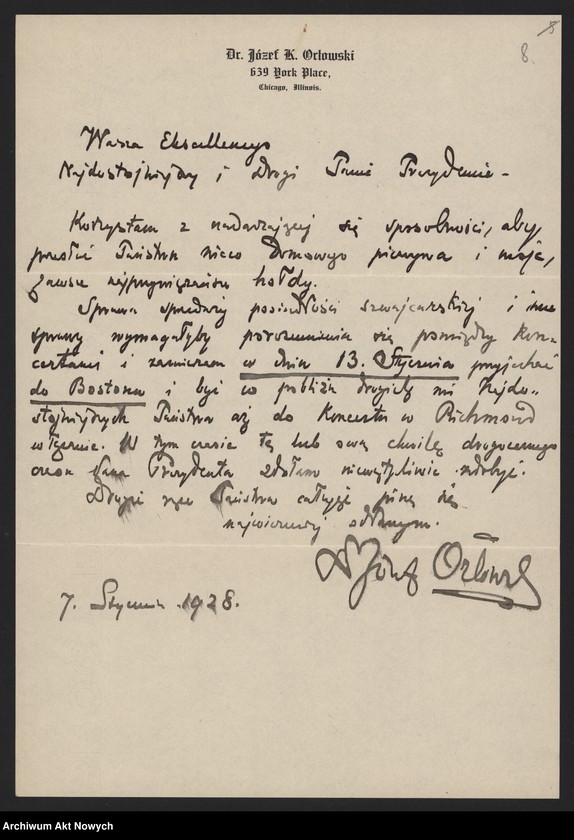 8
8.
Dr. Józef K. Orłowski
639 York Place,
Chicago, Illinois.
Wasza Ekscellencyo
Najdostojniejszy i Drogi Panie Prezydencie -
Korzystam z nadarzającej się sposobności, aby,
przesłać Państwu nieco domowego pieczywa i moje,
zawsze najprzywiązańsze hołdy.
Sprawa sprzedaży posiadłości szwajcarskiej i inne
sprawy wymagałyby porozumienia się pomiędzy kon-
certami i zamierzam w dniu 13. Stycznia przyjechać
do Bostonu i być w pobliżu drogich mi Najdo-
stojniejszych Państwa aż do Koncertu w Richmond
włącznie. W tym czasie tę lub ową chwilę drogocennego
czasu Pana Prezydenta zdołam niewątpliwie zdobyć.
Drogie ręce Państwa całując piszę się
najwierniej oddanym.
Dr Józef Orłowski
7. Stycznia 1928.
Archiwum Akt Nowych